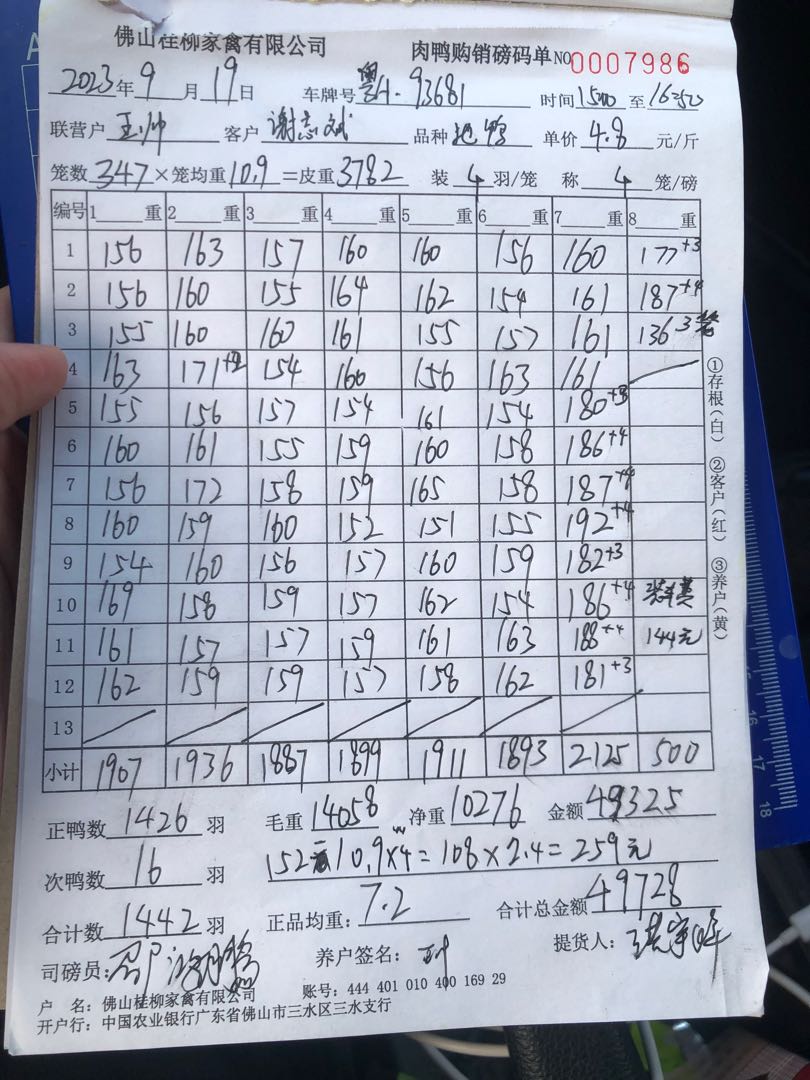 佛山桂柳家禽有限公司 肉鸭购销磅码单NO 0007986
2023年9月19日 车牌号 粤H·93681 时间1500至16:50
联营户 王帅 客户 谢志斌 品种 单价4.8元/斤
笼数347×笼均重10.9=皮重3782 装4羽/笼 称4笼/磅
编号 1 重 2 重 3 重 4 重 5 重 6 重 7 重 8 重
1 156 163 157 160 160 156 160 177+3
2 156 160 155 164 162 154 161 187+4
3 155 160 160 161 155 157 161 136 3
4 163 171 154 160 156 163 161
5 155 156 157 154 161 154 180+3
6 160 161 155 159 160 158 186+4
7 156 172 158 159 165 158 187+4
8 160 159 160 152 151 155 192+4
9 154 160 156 157 160 159 182+3
10 169 158 159 157 162 154 186+4
11 161 157 157 159 161 163 188+4 144元
12 162 159 159 157 158 162 181+3
13
小计 1907 1936 1887 1899 1911 1893 2125 500
①存根(白) ②客户(红) ③养户(黄)
正鸭数1426羽 毛重14058 净重10276 金额49325
次鸭数16羽 152 10.9×4=108×2.4=259元
合计数1442羽 正品均重:7.2 合计总金额49728
司磅员: 养户签名: 提货人:
户 名:佛山桂柳家禽有限公司 账号:444 401 010 400 169 29
开户行:中国农业银行广东省佛山市三水区三水支行
16
17
18